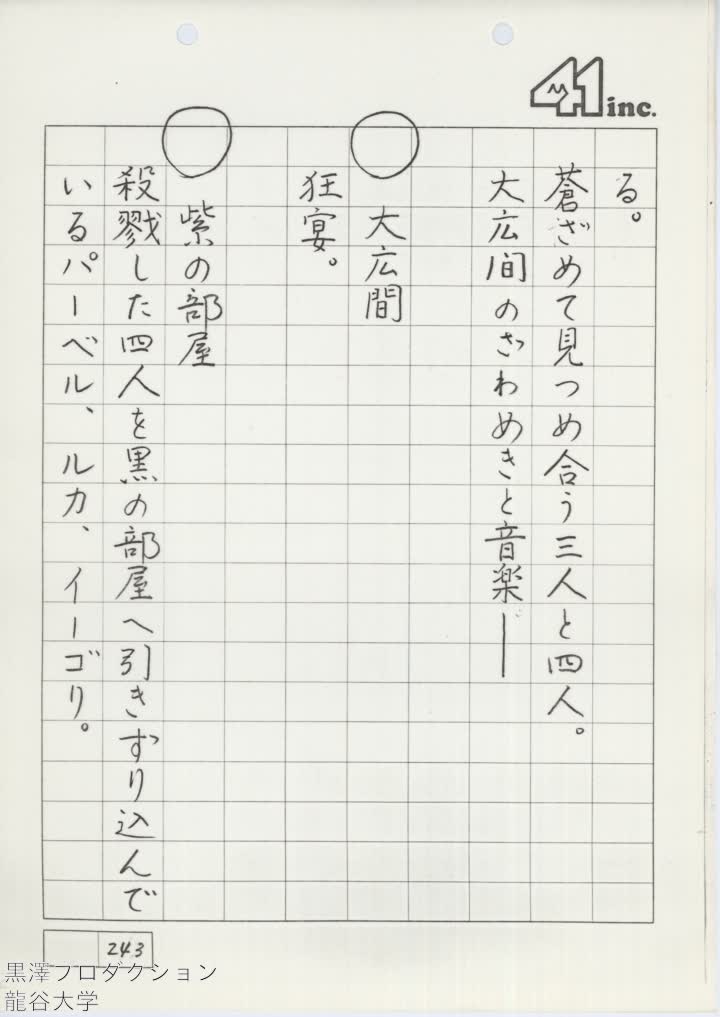 41 inc.
る。
蒼ざめて見つめ合う三人と四人。
大広間のざわめきと音楽——
○ 大広間
狂宴。
○ 紫の部屋
殺戮した四人を黒の部屋へ引きずり込んで
いるパーベル、ルカ、イーゴリ。
243
黒澤プロダクション
龍谷大学